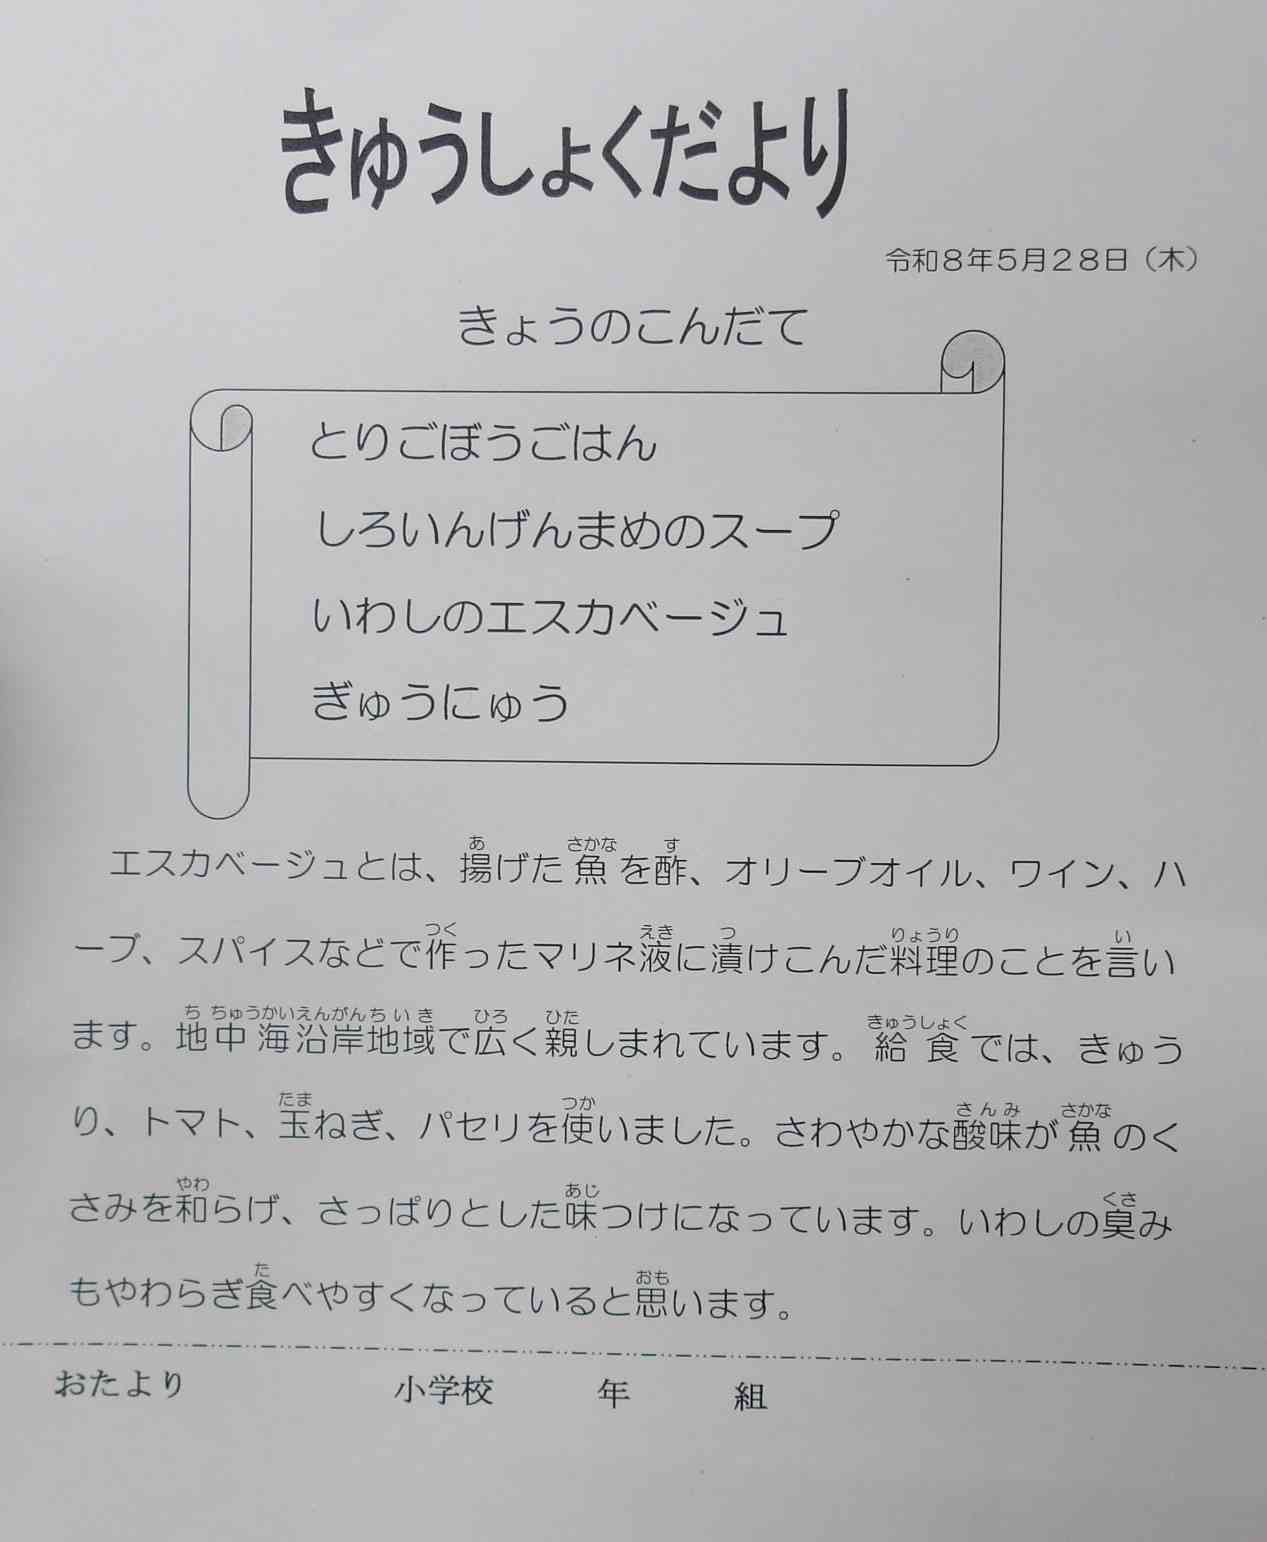 きゅうしょくだより
令和8年5月28日（木）
きょうのこんだて
とりごぼうごはん
しろいんげんまめのスープ
いわしのエスカベージュ
ぎゅうにゅう
あ さかな す
エスカベージュとは、揚げた魚を酢、オリーブオイル、ワイン、ハ
つく えき つ りょうり い
ーブ、スパイスなどで作ったマリネ液に漬けこんだ料理のことを言い
ち ちゅうかいえんがんちいき ひろ ひた きゅうしょく
ます。地中海沿岸地域で広く親しまれています。給食では、きゅう
たま つか さんみ さかな
り、トマト、玉ねぎ、パセリを使いました。さわやかな酸味が魚のく
やわ あじ くさ
さみを和らげ、さっぱりとした味つけになっています。いわしの臭み
た おも
もやわらぎ食べやすくなっていると思います。
おたより 小学校 年 組